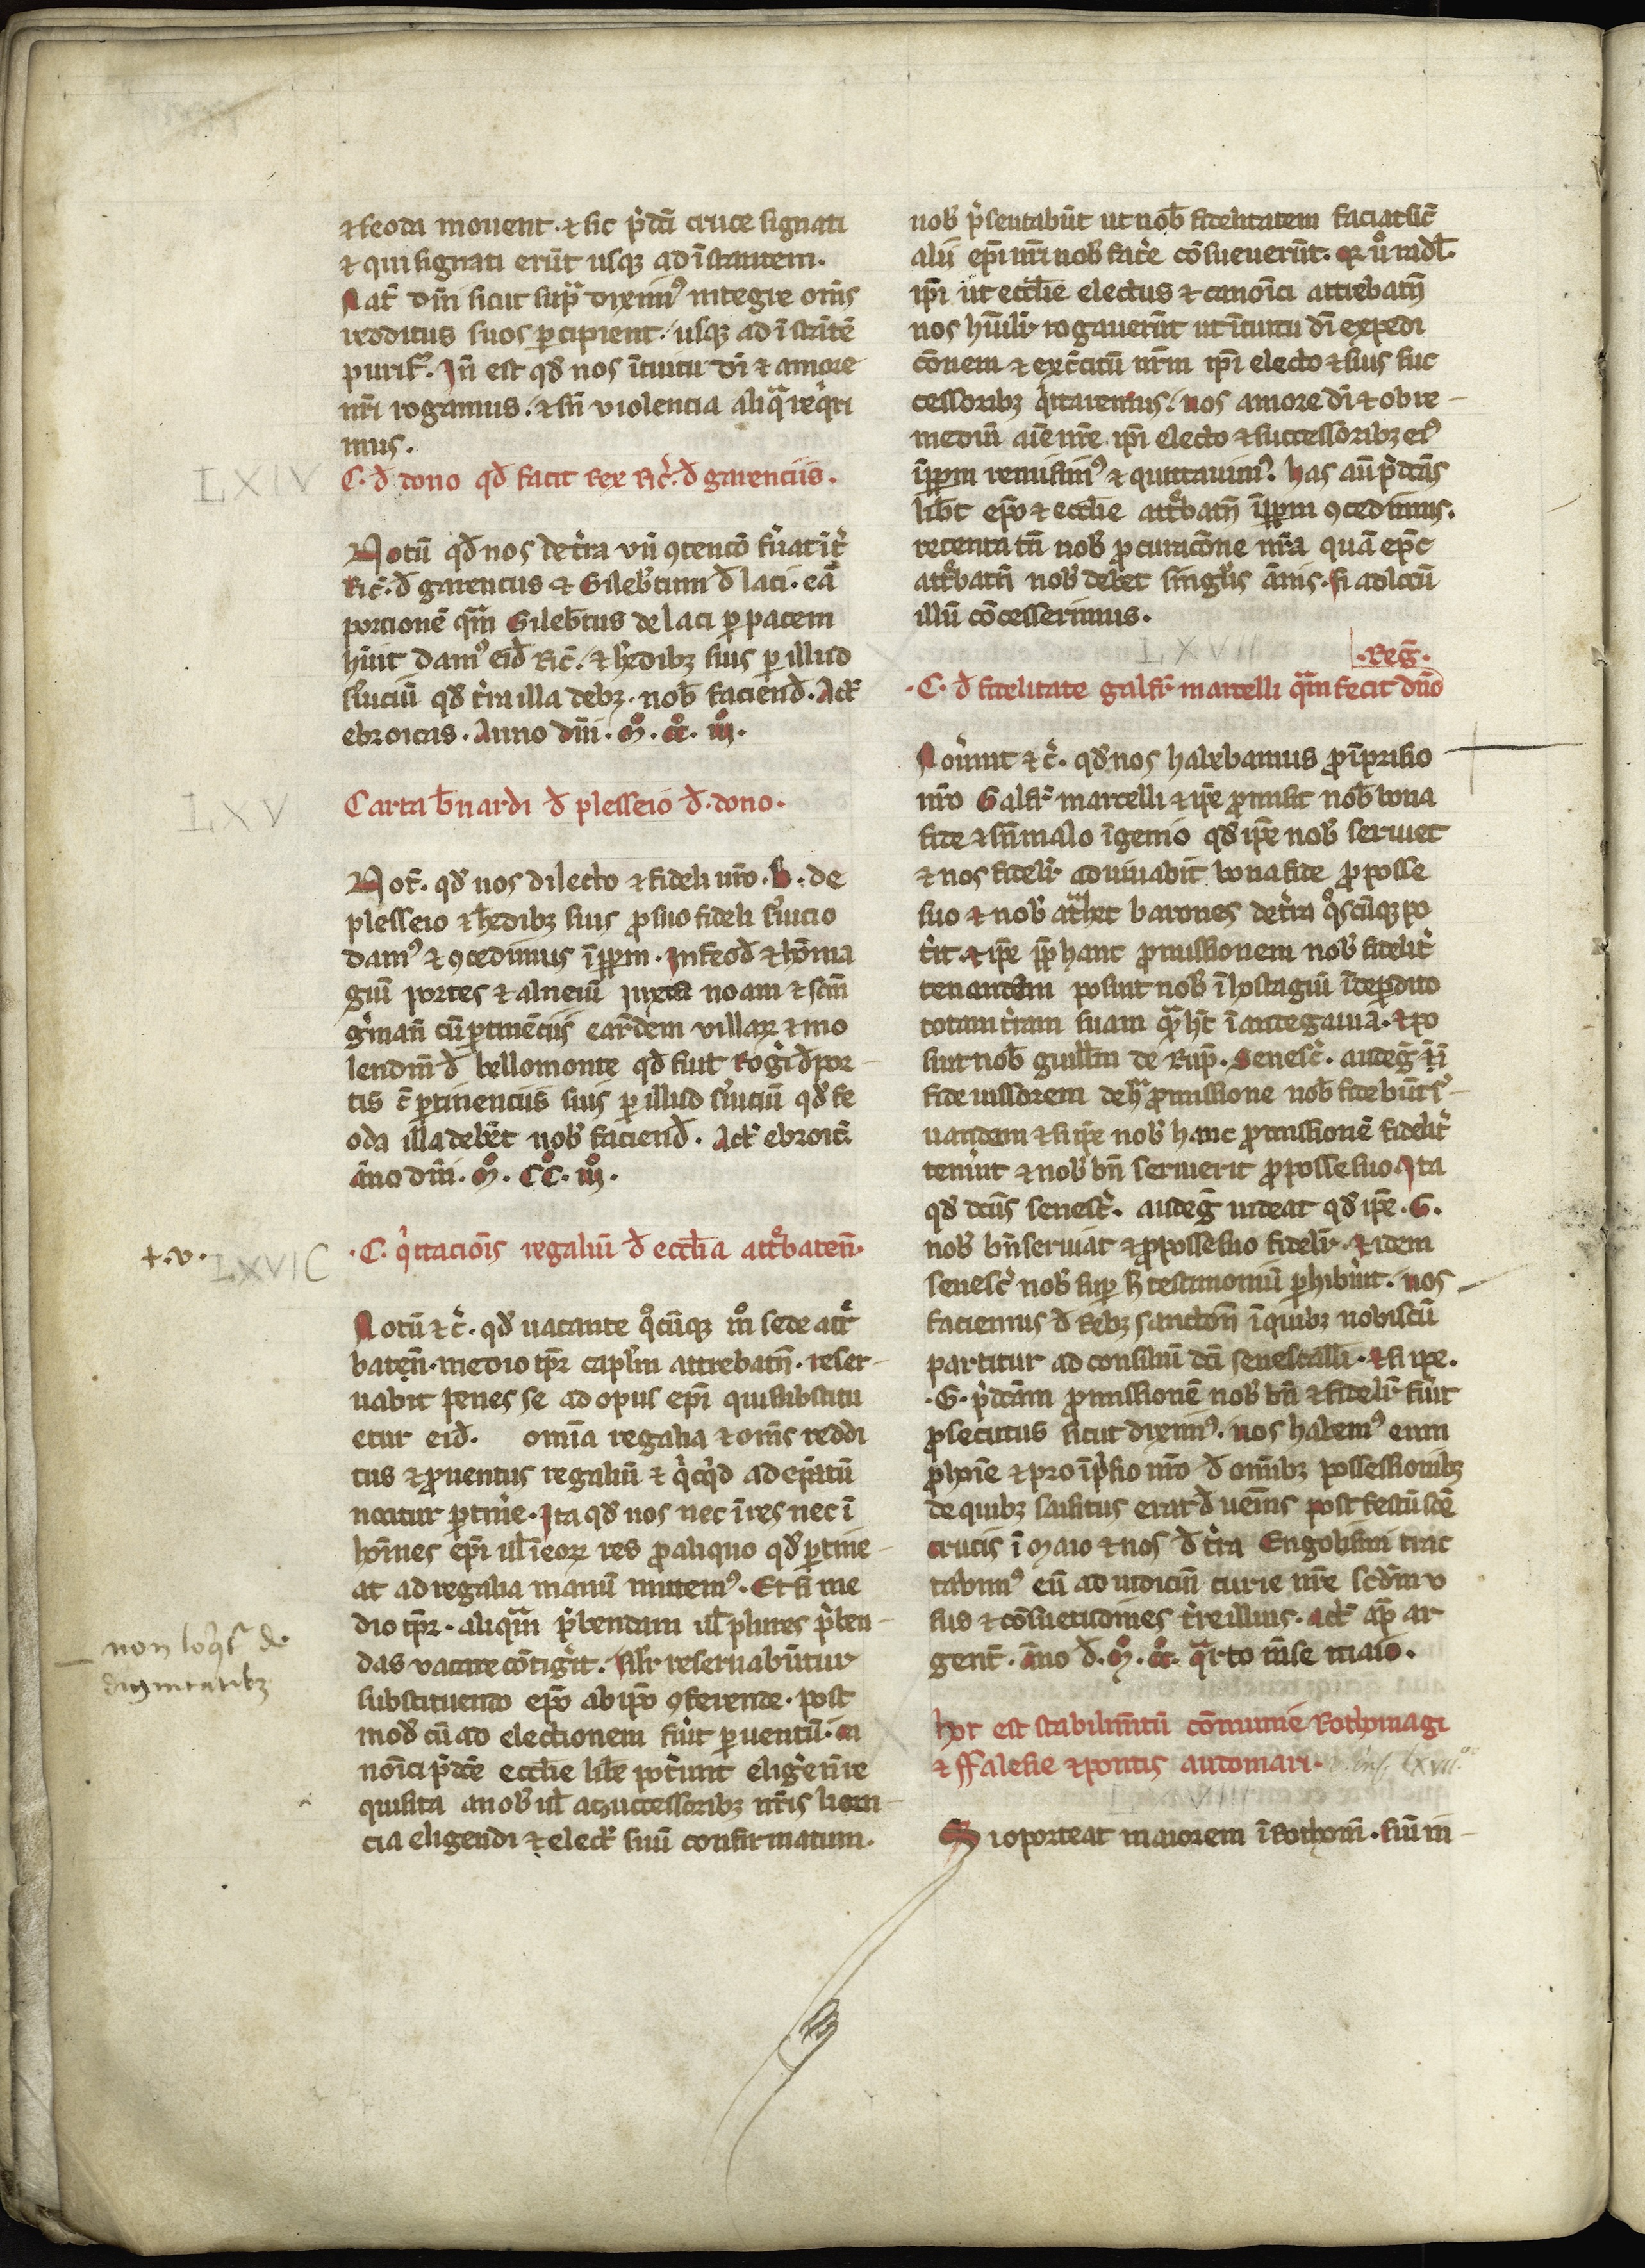 ⁊ feoda mouent. ⁊ sic p̾dc̄i cruce signati
⁊ qui signati erūt usq; ad īstantem.
Nat̾ dn̄i sicut sup̾ diximꝰ integre om̄s
redditus suos ꝑcipient. usq; ad īstātē
purif̾. Jn̄ est qd̾ nos ītuitu dī ⁊ amore
nr̄i rogamus. ⁊ sn̄ violencia aliqᷓ req̾ri
mus.
LXIV
C. đ dono qđ facit Rex Ric̾. đ garenciis.
Notū qđ nos de t̾ra vn̄ ꝯtencō fu̾at īt̾
Ric̾. đ garenciis ⁊ Gileb̾tum đ laci. eā
porcionē qᷓm Gileb̾tus de laci ꝑ pacem
hūit damꝰ eiđ Ric̾. ⁊ h̾edibz suis ꝑ illud
s̾uiciū qđ t̾ra illa debz. nob̾ faciend̾. Act̾
ebroicas. Anno dn̄i. M̊. cc̊. iij̊.
LXV
Carta b̾nardi đ plesseio đ. dono.
Not̾. qđ nos dilecto ⁊ fideli nr̄o. B. de
plesseio ⁊ h̾edibz suis ꝓ suo fideli s̾uicio
damꝰ ⁊ ꝯcedimus īꝑpm. In feod̾ ⁊ hōma
giū portes ⁊ alneiū iuxta noam ⁊ scm̄
g̾man̄ cū ꝑtinēciis eardem villaꝝ ⁊ mo
lendin̄ đ bellomonte qđ fuit Rog̾i đ por-
tis c̄ ꝑtinenciis suis ꝑ illud s̾uiciū qđ fe
oda illa debēt nob̾ faciend̾. Act̾ ebroic̾
āno dn̄i. M̊. CC̊. iij̊.
+.v. LXVI C
.C. q̾tacioīs regaliū đ eccl̄ia attᷓbaten̄.
Notū ⁊c̾. qđ uacante qͦcūq; mͦ sede att̾
baten̄. medio tp̄r capl̄m attrebatn̄. reser-
uabit penes se ad opus ep̄i qui substitu
etur eiđ. omīa regalia ⁊ om̄s reddi
tus ⁊ ꝓuentus regaliū ⁊ q̾cq̾d ad ep̄atū
noscitur ꝑtin̾e. Ita qđ nos nec īres nec ī
hōīnes ep̄i ul̄ ī eoꝝ res ꝓ aliquo qđ ꝑtine-
at ad regalia manū mittemꝰ. Et si me
dio tp̄r. aliqᷓm p̾bendam ul̄ plures p̾ben-
non loq̾t̾ de
dignitatibz
das vacare cōtig̾it. sil̾r reseruabūtur
substituendo ep̄o ab ip̄o ꝯferende. post
mod̾ cū ad electionem fu̾it ꝑuentū. ca
nōici p̾dc̄e eccl̄ie lib̾e pot̾unt elig̾e n̄ re
quisita a nob̾ ul̄ a successoribz nr̄is licen-
cia eligendi ⁊ elect̾ suū confirmatum.
nob̾ p̾sentabūt ut nob̾ fidelitatem faciat sic̾
alii ep̄i nr̄i nob̾ fac̾e cōsueuerūt. Qꝛ ů radl̾.
ip̄i ut eccl̄ie electus ⁊ canoīci attrebatn̄
nos hūilr̾ rogauerūt ut ītuitu dī expedi
cōnem ⁊ exc̾itū nr̄m ip̄i electo ⁊ suis suc
cessoribz q̾ttaremus. nos amore dī ⁊ ob re-
mediū aīe nr̄e ip̄i electo ⁊ successoribz eiꝰ
īꝑpm remisimꝰ ⁊ quittauimꝰ. has au̾ p̾dcās
lib̾t̾ ep̄o ⁊ eccl̄ie attᷓbatn̄ īꝑpm ꝯcedimus.
retenta tn̄ nob̾ ꝓcuracōne nr̄a quā ep̄c
attᷓbatn̄ nob̾ debet singl̾is ānis. si ad locū
illū cōcesserimus.
LXVII
.Reg̾.
.C. đ fidelitate galfr̾ marcelli qᷓm fecit dn̄o
Nou̾int ⁊c̾. qđ nos habebamus ꝓ īprisio
nr̄o Galfr̾ marcelli ⁊ ip̄e ꝓmisit nob̾ bona
fide ⁊ sn̄ malo īgenio qđ ip̄e nob̾ seruiet
⁊ nos fidelr̾ adiuuabit bona fide ꝓ posse
suo ⁊ nob̾ atᷓhet barones de t̾ra qͦscūq; po
t̾it. ⁊ ip̄e ꝓp̄ hanc ꝓmissionem nob̾ fidelit̾
tenendam posuit nob̾ ī hostagiū ītep̄dito
totam t̾ram suam qᷓm hēt ī andegauiā. ⁊ po
suit nob̾ guill̄m de Rup̾. Senesc̾. andeg̾. ⁊ ī
fideiussorem de hᷓ ꝓmissione nob̾ fide būt s̾-
uandam ⁊ si ip̄e nob̾ hanc ꝓmissionē fidelit̾
tenu̾it ⁊ nob̾ bn̄ seruierit ꝓ posse suo Ita
qđ dc̄us senesc̾. andeg̾ uideat qđ ip̄e. G.
nob̾ bn̄ seruiat ⁊ ꝓ posse suo fidelr̾. ⁊ idem
senesc̾ nob̾ sup̾ h̾ testimoniū ꝑhibu̾it. nos
faciemus đ rebz sanctoū̄ ī quibz nobiscū
partitur ad consiliū dc̄i senescalli. ⁊ si ip̄e.
.G. p̾dcām ꝓmissionē nob̾ bn̄ ⁊ fidelr̾ fu̾it
ꝓsecutus sicut diximꝰ. nos habemꝰ eum
ꝓ hoīe ⁊ pro īp̾sio nr̄o đ omībz possessionibz
de quibz saisitus erat đ uen̄is post festū sc̄e
crucis ī maio ⁊ nos đ t̾ra Engolisini trac
tabimꝰ eū ad iudiciū curie nr̄e sc̄dm u
sus ⁊ cōsuetudines t̾re illius. Act̾ ap̾ ar
gent̾. āno d̾. M̊. cc̊. qᷓrto mēse maio.
hoc est stabilim̄tū cōmunie Rothomagi
⁊ ffalesie ⁊ pontis audomari.
Si oporteat maiorem ī Rothom̄. siu̾ in-